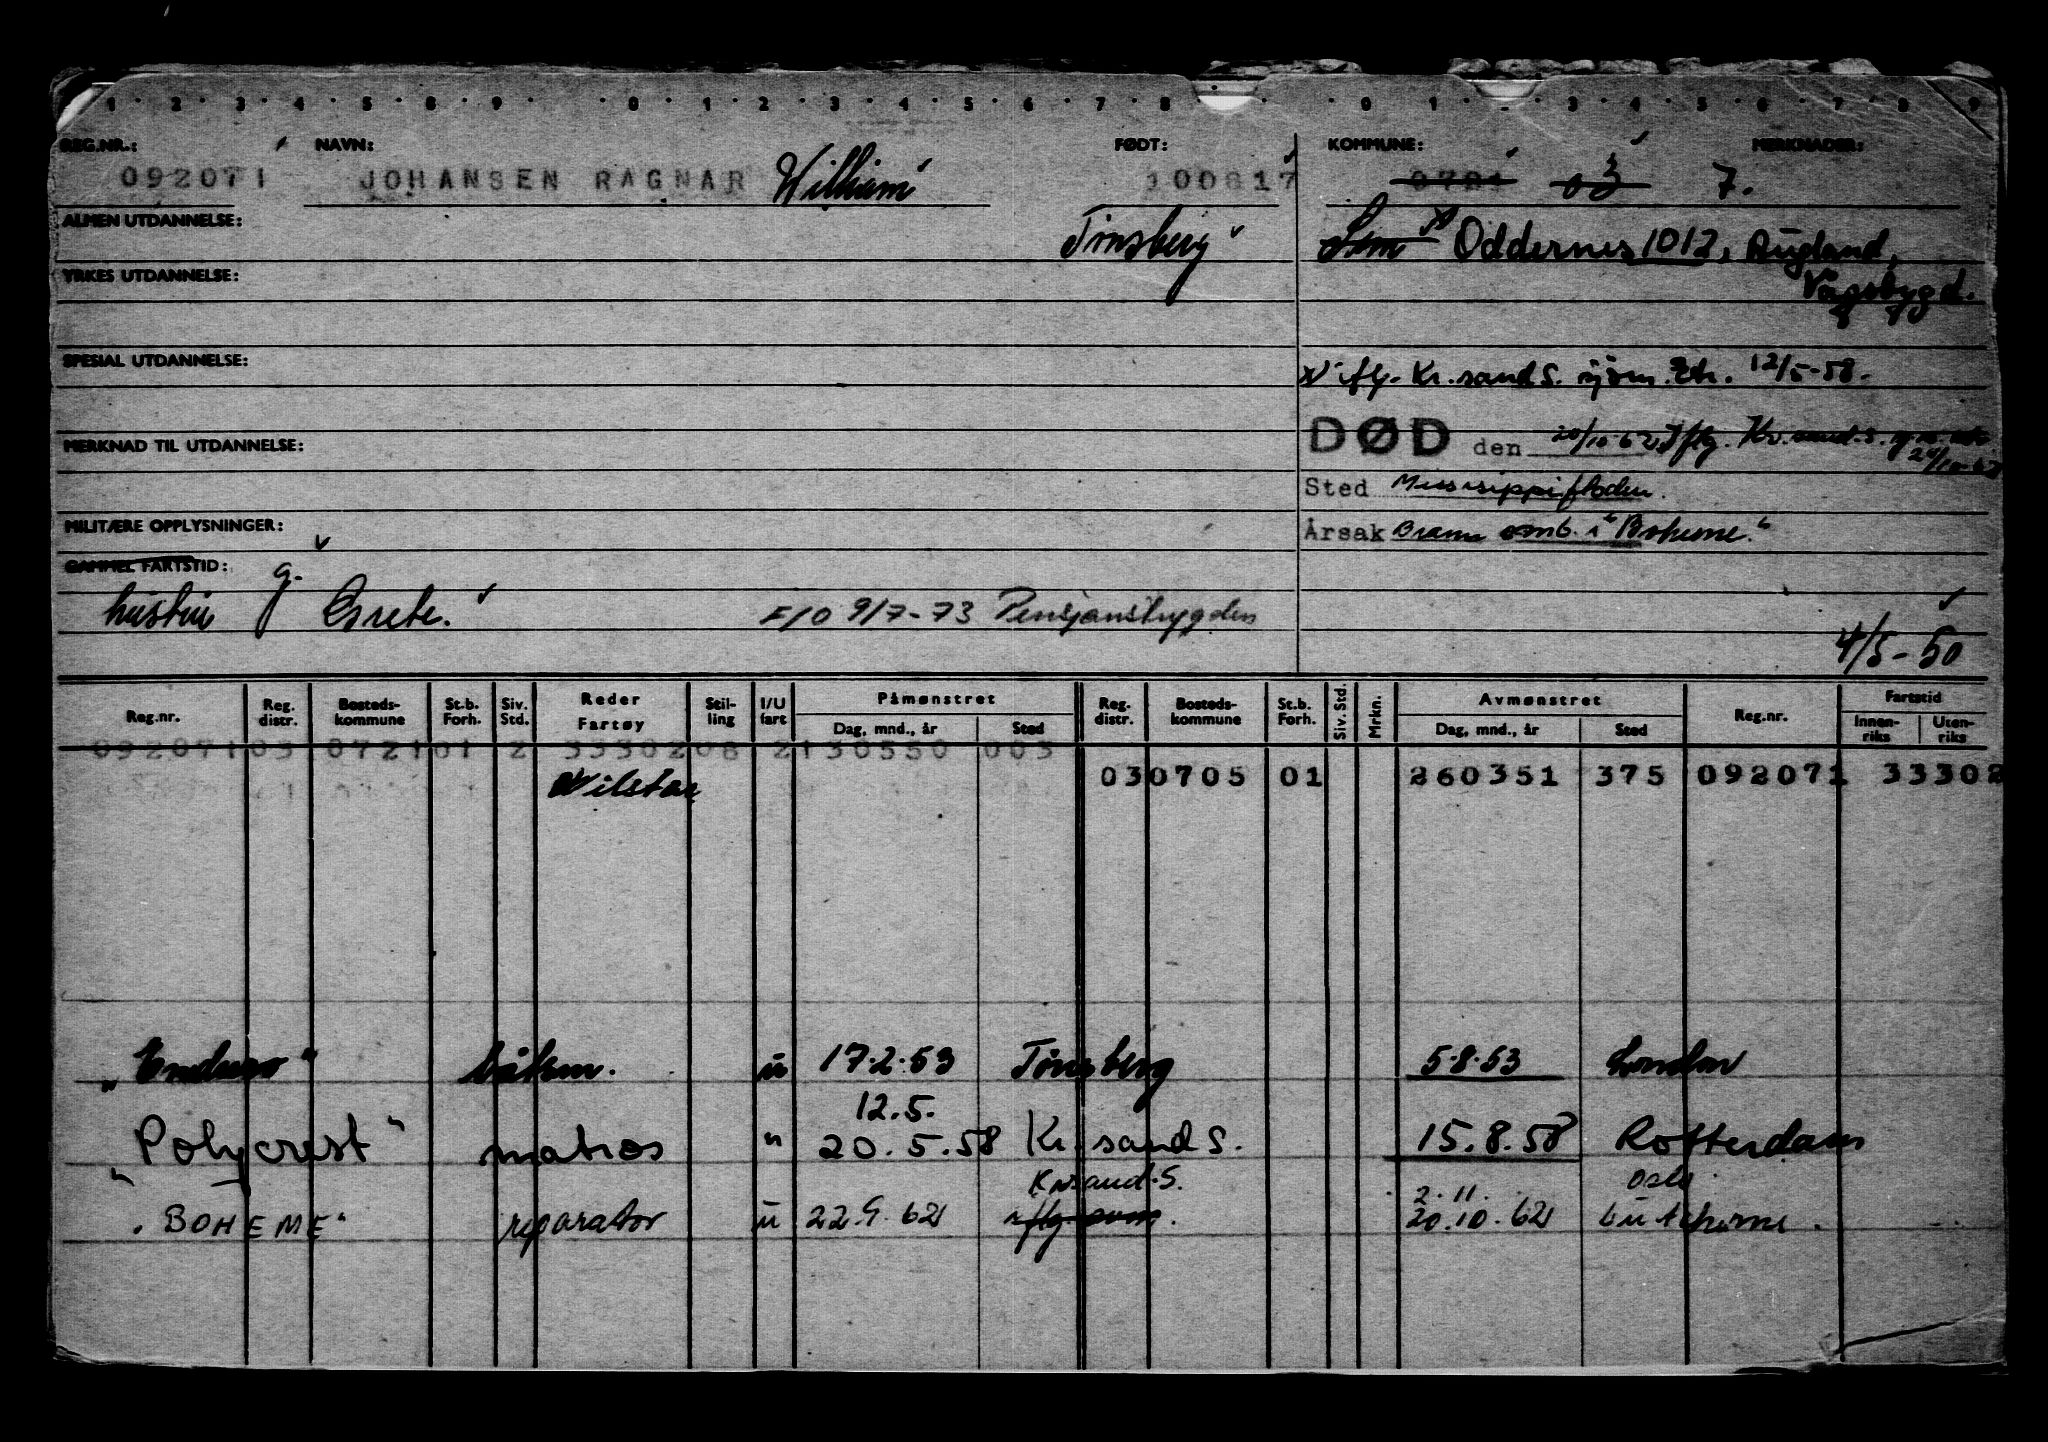 1 · 2 · 3 · 4 · 5 · 6 · 9 · 0 · 1 · 2 · 3 · 4 · 5 · 6 · 7 · 8 · 0 · 1 · 3 · 4 · 5 · 6 · 7 · 8 · 9
REG.NR.: NAVN: FØDT: KOMMUNE: MERKNADER:
092071 JOHANSEN RAGNAR William 100817 03 7.
ALMEN UTDANNELSE: Tønsberg Sem Oddernes 1012, Augland,
YRKES UTDANNELSE: Vågsbygd.
SPESIAL UTDANNELSE: x iflg. Kr.sand S. sjøm. 12/5-58.
MERKNAD TIL UTDANNELSE: DØD den 20/10-62 Iflg. Kr.sand.S.
Sted Missisippifloden.
MILITÆRE OPPLYSNINGER: Årsak Brann omb. i "Boheme"
GAMMEL FARTSTID:
hustru g. Grete. F/O 9/7-73 Pensjonstrygden
4/5-50
Reg.nr. Reg. distr. Bosteds-kommune St.b. Forh. Siv. Std. Reder Fartøy Stil-ling I/U fart Påmønstret Dag, mnd., år Sted Reg. distr. Bosteds-kommune St.b. Forh. Siv. Std. Mrkn. Avmønstret Dag, mnd., år Sted Reg.nr. Fartstid Innen-riks Uten-riks
092071 03 0721 01 2 33302 08 2 130550 003
Wilstar 030705 01 260351 375 092071 33302
"Enduro" båtsm. u 17.2.53 Tønsberg 5.8.53 London
12.5.
"Polycrest" matros " 20.5.58 Kr.sand S. 15.8.58 Rotterdam
Kr.sand.S. 2.11. Oslo
"BOHEME" reparatør u 22.9.62 20.10.62